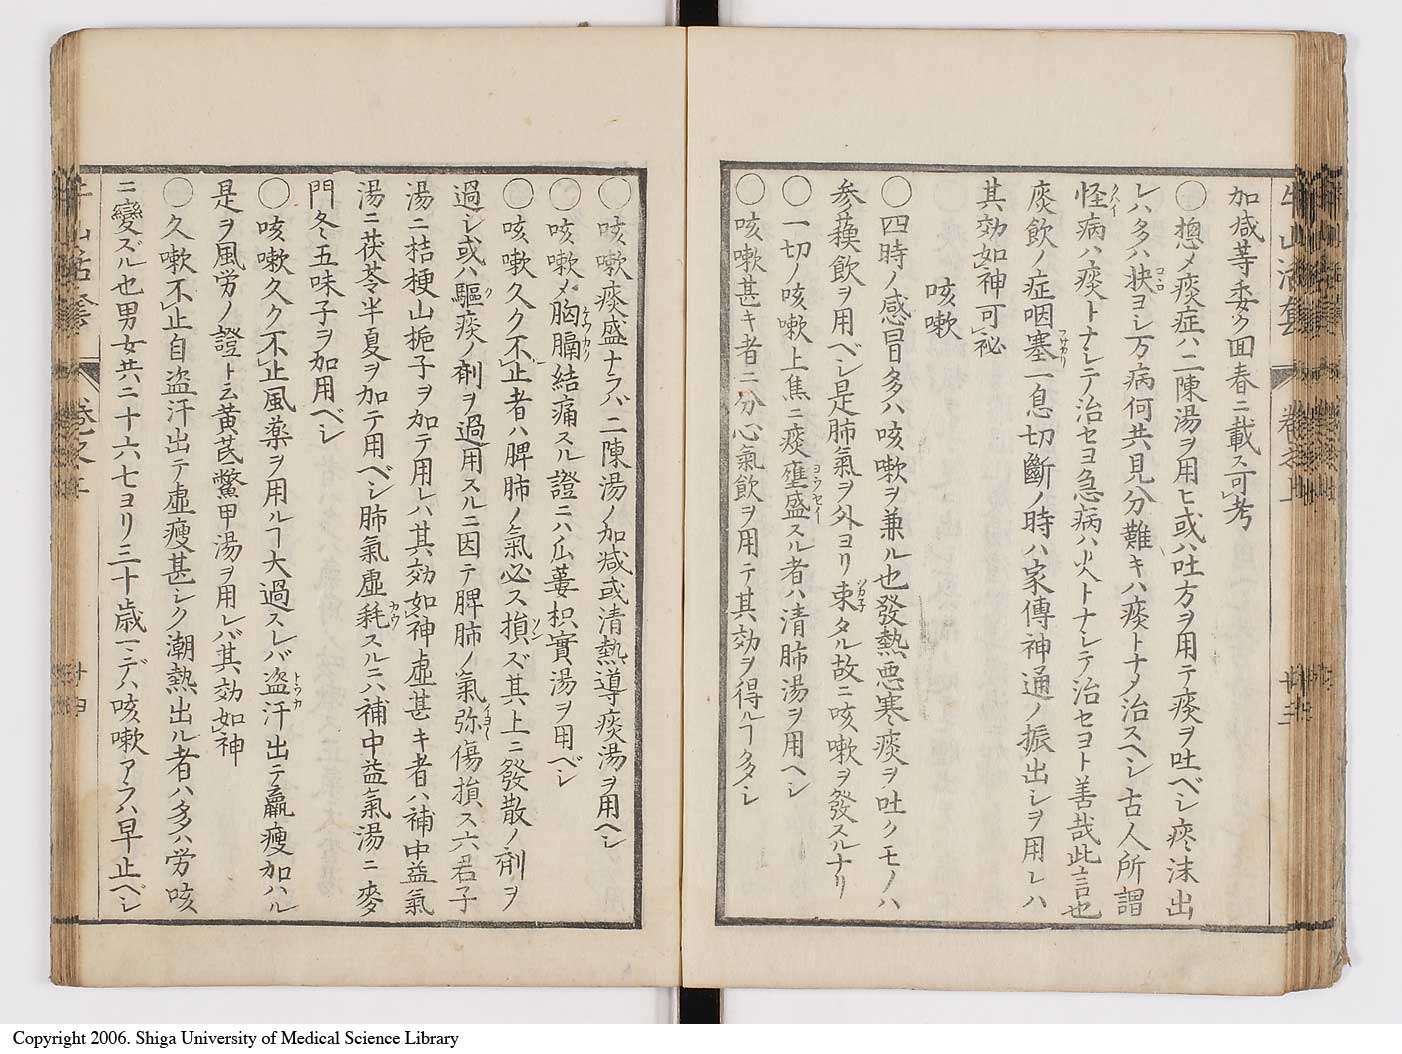 加减等委ク回春ニ載ス可考
○摠メ痰症ハ二陳湯ヲ用ヒ或ハ吐方ヲ用テ痰ヲ吐ベシ痰沫出
レハ多ハ抉ヨシ万病何共見分難キハ痰トナメ治スヘシ古人所謂
怪病ハ痰トナシテ治セヨ急病ハ火トナシテ治セヨト善哉此言也
痰飲ノ症咽塞一息切斷ノ時ハ家傳神通ノ振出シヲ用レハ
其効如神可祕
咳嗽
○四時ノ感冒多ハ咳嗽ヲ兼ル也發熱惡寒痰ヲ吐クモノハ
参蘓飲ヲ用ベシ是肺氣ヲ外ヨリ束タル故ニ咳嗽ヲ發スルナリ
○一切ノ咳嗽上焦ニ痰壅盛スル者ハ清肺湯ヲ用ヘシ
○咳嗽甚キ者ニ分心氣飲ヲ用テ其効ヲ得ルヿ多シ
牛山活套 卷之上 廿三
○咳嗽痰盛ナラハ二陳湯ノ加减或清熱導痰湯ヲ用ヘシ
○咳嗽メ胸膈結痛スル證ニハ瓜蔞枳實湯ヲ用ベシ
○咳嗽久ク不止者ハ脾肺ノ氣必ス損ズ其上ニ發散ノ剤ヲ
過シ或ハ驅痰ノ剤ヲ過用スルニ因テ脾肺ノ氣弥傷損ス六君子
湯ニ桔梗山梔子ヲ加テ用レハ其効如神虚甚キ者ハ補中益氣
湯ニ茯苓半夏ヲ加テ用ベシ肺氣虚耗スルニハ補中益氣湯ニ麥
門冬五味子ヲ加用ベシ
○咳嗽久ク不止風薬ヲ用ルヿ大過スレバ盗汗出テ羸瘦加ハル
是ヲ風労ノ證ト云黄芪鱉甲湯ヲ用レバ其効如神
○久嗽不止自盗汗出テ虚瘦甚シク潮熱出ル者ハ多ハ労咳
ニ變ズル也男女共ニ十六七ヨリ三十歳マデハ咳嗽アラハ早止ベシ
Copyright 2006. Shiga University of Medical Science Library